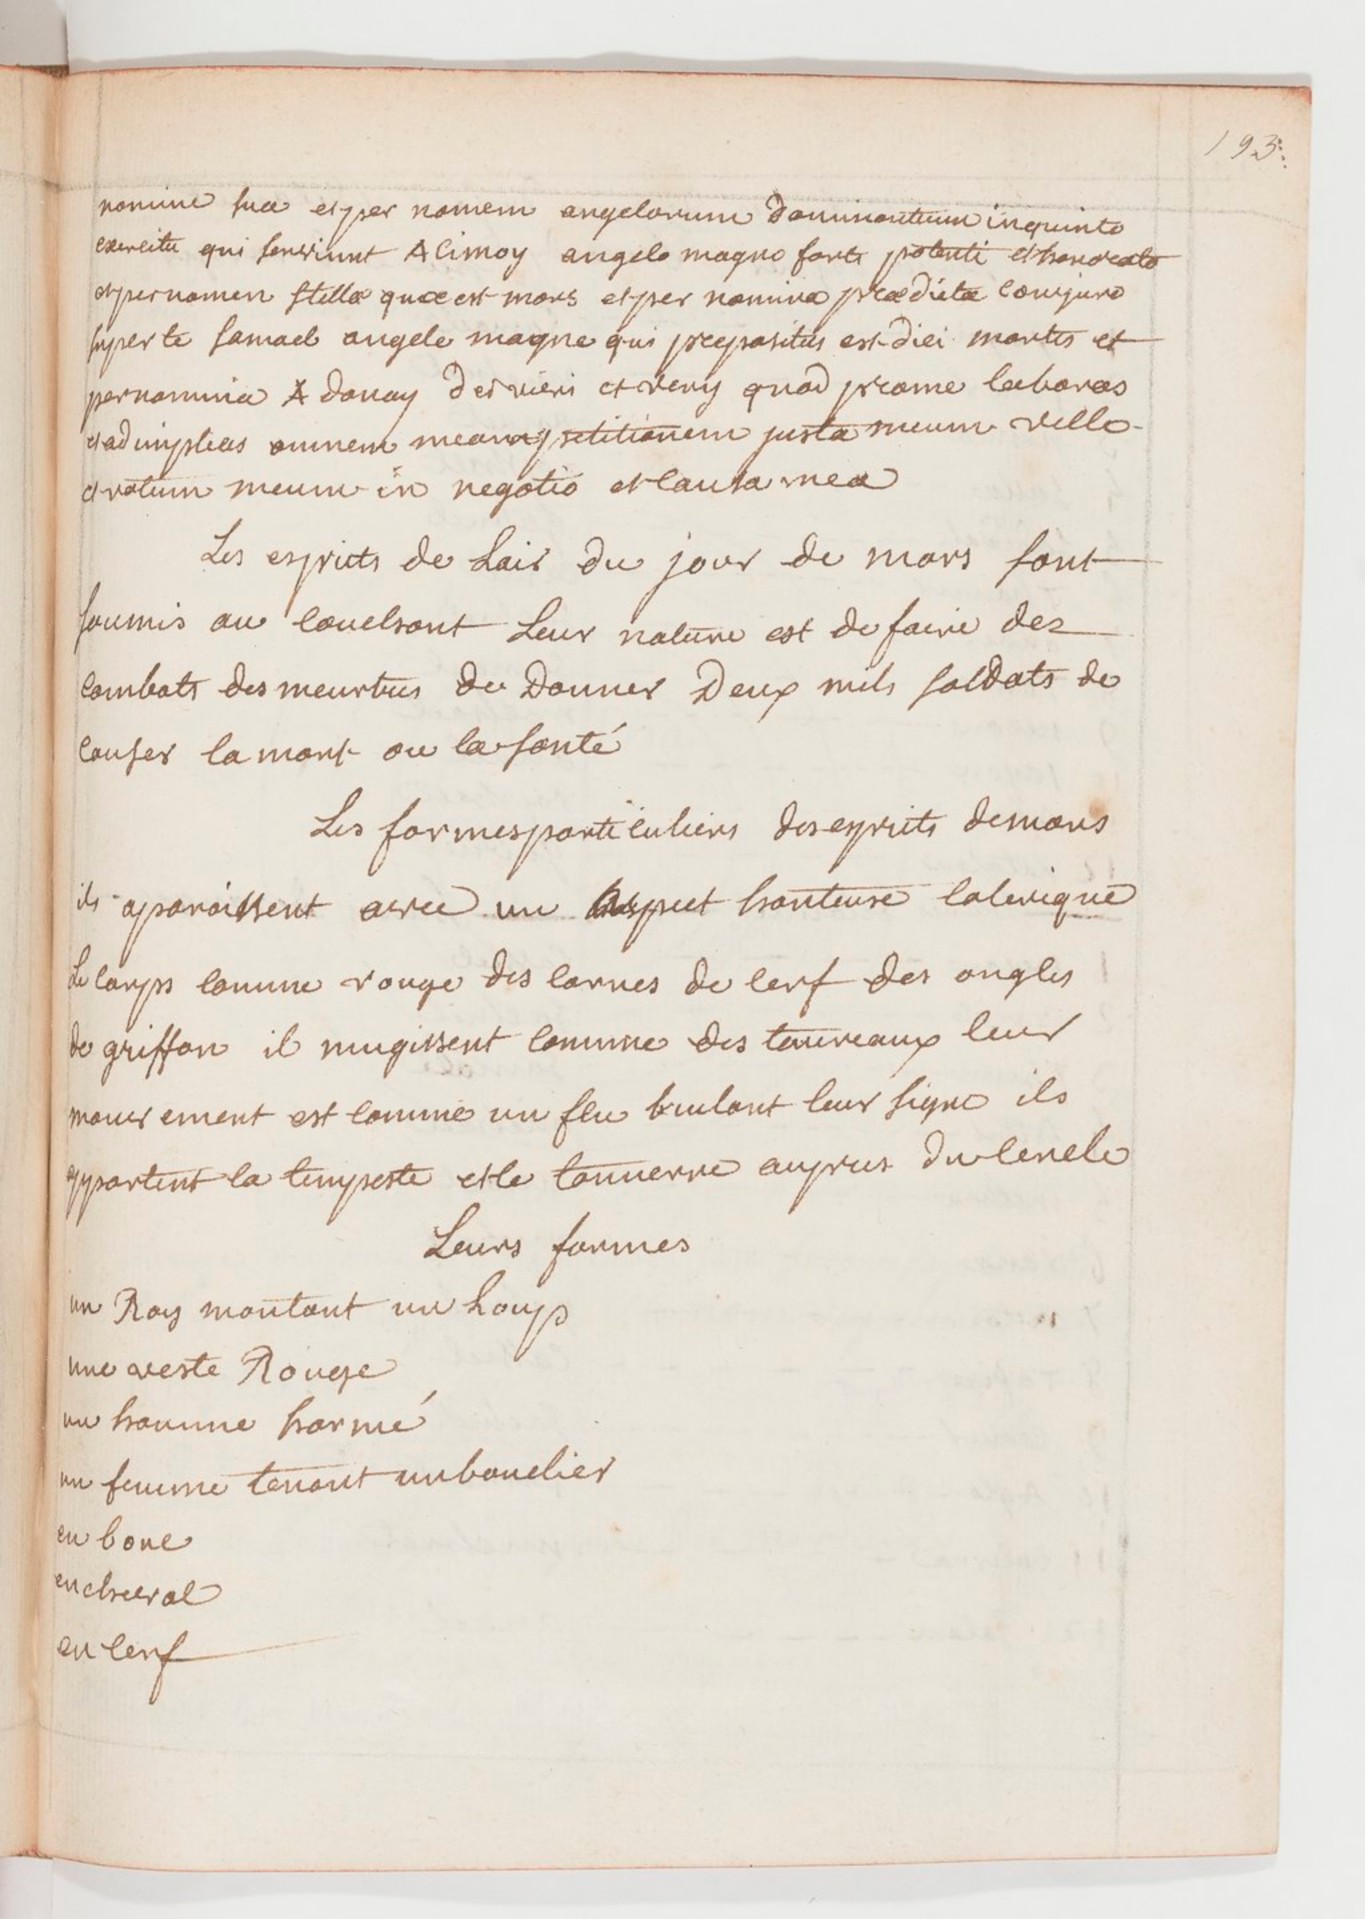 193
nomine sua et per nomem angelorum Dominantium in quinto
exercitu qui serviunt Acimoy angelo magno forti potenti et honorato
et per nomen stella quæ est mars et per nomina prædicta conjuro
super te Samael angele magne qui prepositus est diei martis et
per nomina Adonay dei vieri et very quod pro me labores
et ad impleas omnem meam petitionem justa meum velle
et votum meum in negotio et causa mea
Les esprits de Lair du jour de mars sont
soumis au Leur nature est de faire des
combats des meurtres de Donner Deux mils soldats de
causer la mort ou la santé
Les formes particuliers des esprits de mars
ils aparoissent avec un aspect honteuse colerique
Le corps comme rouge des cornes de cerf des ongles
de griffon il mugissent comme des taureaux leur
mouvement est comme un feu brulant leur signe ils
apportent la tempeste et le tonnerre aupres du cercle
Leurs formes
un Roy montant un Loup
une veste Rouge
un homme harmé
un femme tenant un bouclier
en bouc
en cheval
en cerf